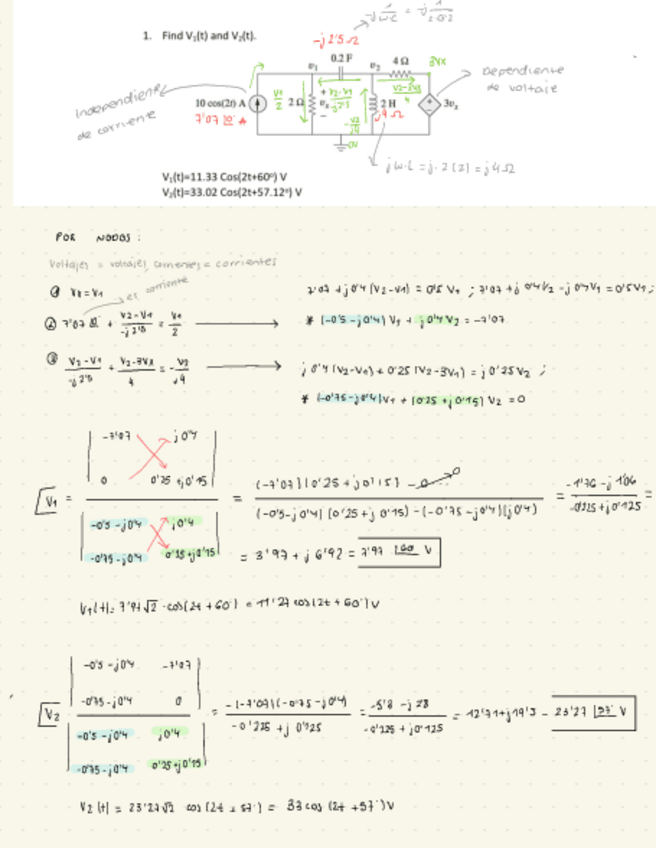 -j 1/w·c = -j 1/2·0'2
1. Find V₁(t) and V₂(t).
-j 2'5 Ω
0.2 F
v₁
v₂
4 Ω
3Vx
Dependiente
de voltaje
Independiente
de corriente
10 cos(2t) A
7'07 |0
V1/2
2 Ω
+ vₓ -
V2-V1/-j2'5
V2-3Vx/4
2 H
j4 Ω
3vₓ
0V
jw·L = j·2(2) = j4Ω
V₁(t)=11.33 Cos(2t+60º) V
V₂(t)=33.02 Cos(2t+57.12º) V
POR NODOS:
Voltajes = voltajes, corrientes = corrientes
① Vx = V1
es corriente
② 7'07 |0 + V2-V1/-j2'5 = V1/2
7'07 + j0'4 (V2-V1) = 0'5 V1 ; 7'07 + j0'4V2 - j0'4V1 = 0'5V1 ;
* (-0'5 - j0'4) V1 + j0'4 V2 = -7'07
③ V2-V1/-j2'5 + V2-3Vx/4 = -V2/j4
j0'4 (V2-V1) + 0'25 (V2-3V1) = j0'25V2 ;
* (-0'75 - j0'4)V1 + (0'25 + j0'15) V2 = 0
-7'07 j0'4
0 0'25 + j0'15
V1 =
-0'5 - j0'4 j0'4
-0'75 - j0'4 0'25 + j0'15
= (-7'07)(0'25 + j0'15) - 0 / (-0'5 - j0'4)(0'25 + j0'15) - (-0'75 - j0'4)(j0'4) = -1'76 - j1'06 / -0'225 + j0'125 =
= 3'97 + j6'92 = 7'97 |60 V
V1(t) = 7'97√2 · cos(2t + 60°) = 11'27 cos(2t + 60°) V
-0'5 - j0'4 -7'07
-0'75 - j0'4 0
V2 =
-0'5 - j0'4 j0'4
-0'75 - j0'4 0'25 + j0'15
= -(-7'07)(-0'75 - j0'4) / -0'225 + j0'125 = -5'3 - j2'8 / -0'225 + j0'125 = 12'71 + j19'5 = 23'27 |57° V
V2(t) = 23'27√2 cos(2t + 57°) = 33 cos(2t + 57°) V